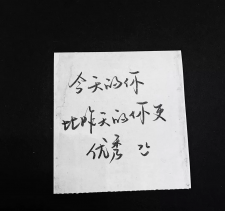 今天的你
比昨天的你更
优秀